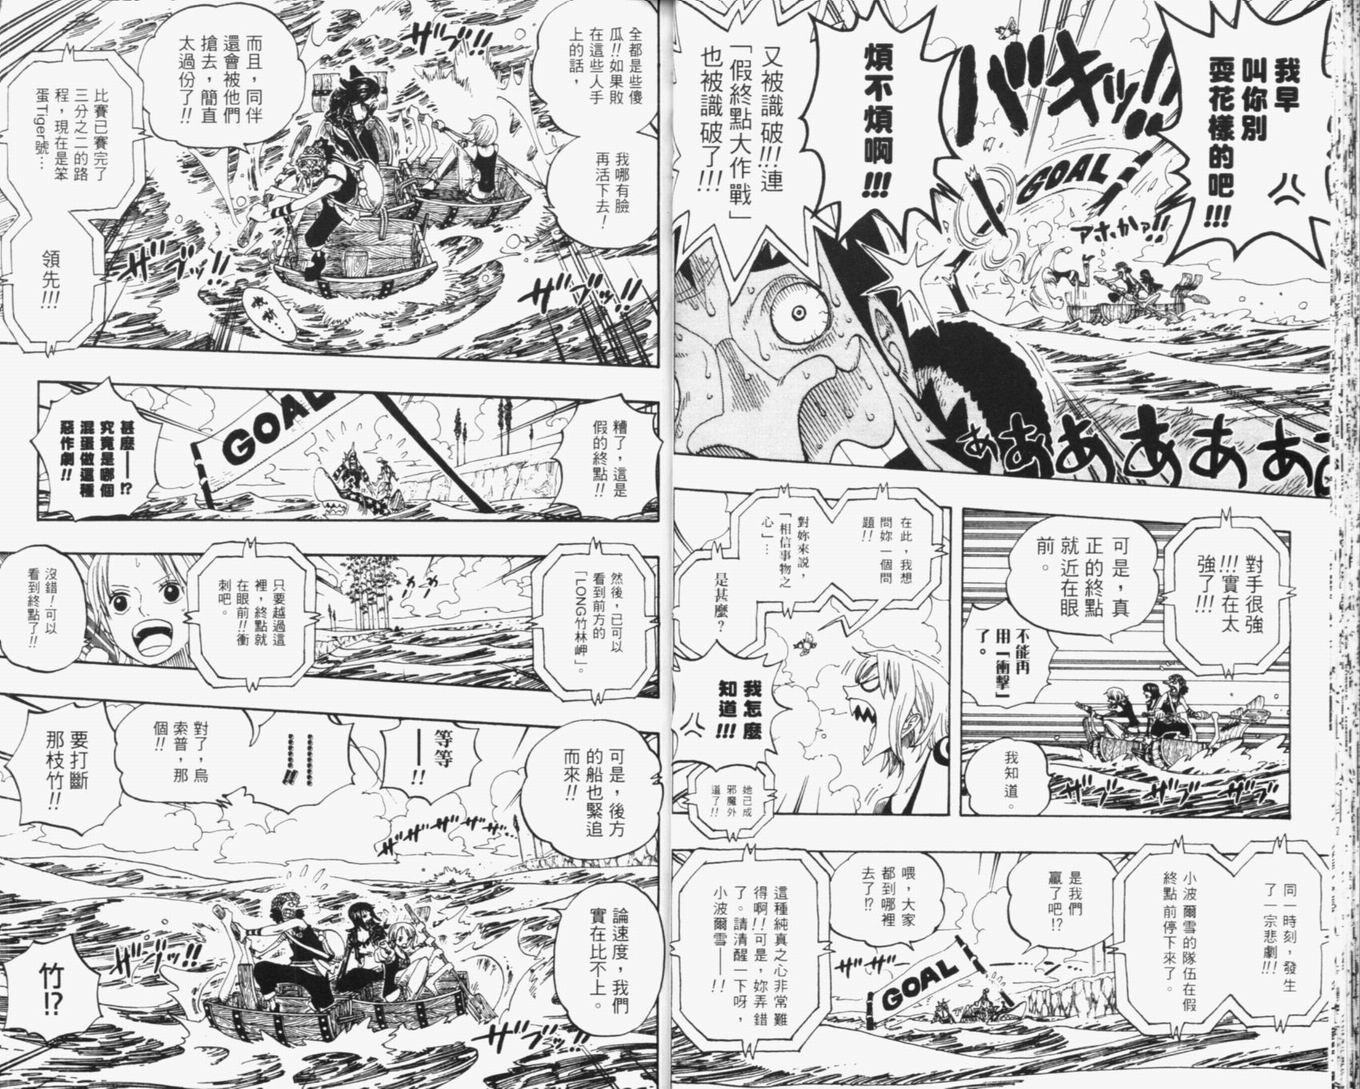 我早
叫你別
耍花樣的吧!!!
バキッ!!
GOAL
アホかっ!!
煩不煩啊!!!
又被識破!!!連
「假終點大作戰」
也被識破了!!!
ああああああ
對手很強
!!!實在太
強了!!!
可是，真
正的終點
就近在眼
前。
不能再
用「衝擊」
了。
我知道。
ザブ ザブ
在此，我想
問妳一個問
題!!
對妳來說，
「相信事物之
心」…
是甚麼?
我怎麼
知道!!!
她已成
邪魔外
道了!!
同一時刻，發生
了一宗悲劇!!!
小波爾雪的隊伍在假
終點前停下來了。
是我們
贏了吧!?
喂，大家
都到哪裡
去了!?
ザザッ
GOAL
這種純真之心非常難
得啊!!可是，妳弄錯
了。請清醒一下呀，
小波爾雪——!!
全都是些傻
瓜!!如果敗
在這些人手
上的話，
我哪有臉
再活下去!
而且，同伴
還會被他們
搶去，簡直
太過份了!!
比賽已賽完了
三分之二的路
程，現在是笨
蛋Tiger號…
領先!!!
ザブッ!!
ザブッ!!
ザブッ!!
糟了，這是
假的終點!!
GOAL
甚麼——!?
究竟是哪個
混蛋做這種
惡作劇!!
然後，已可以
看到前方的
「LONG竹林岬」。
只要越過這
裡，終點就
在眼前!!衝
刺吧。
沒錯!可以
看到終點了!!
可是，後方
的船也緊追
而來!!
等等
——!!
對了，烏
索普，那
個!!
要打斷
那枝竹!!
ザザザッ
論速度，我們
實在比不上。
竹!?